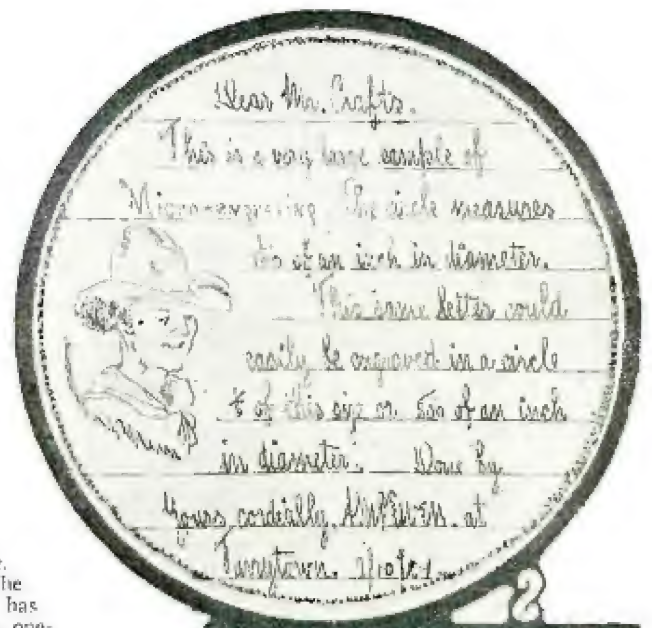 Dear Mr. Crafts.
This is a very large sample of
Micro-engraving. The circle measures
of an inch in diameter.
This same letter could
easily be engraved in a circle
of this size or of an inch
in diameter. Done by
Yours cordially, at
Tarrytown.
he
has
one-
2